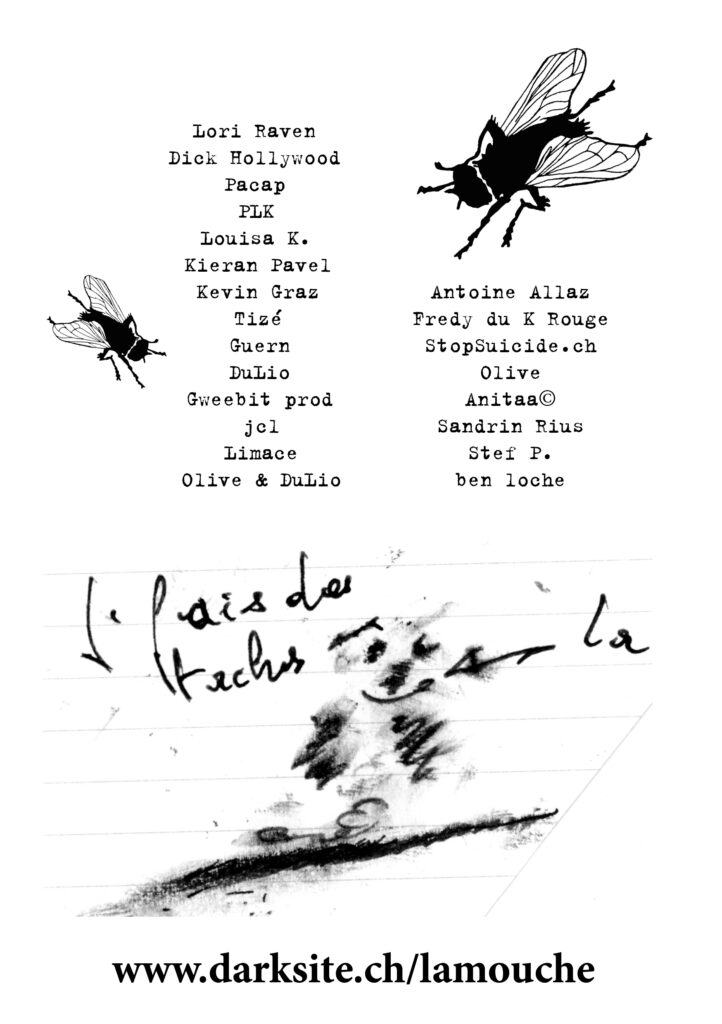 Lori Raven
Dick Hollywood
Pacap
PLK
Louisa K.
Kieran Pavel
Kevin Graz
Tizé
Guern
DuLio
Gweebit prod
jcl
Limace
Olive & DuLio
Antoine Allaz
Fredy du K Rouge
StopSuicide.ch
Olive
Anitaa©
Sandrin Rius
Stef P.
ben loche
Je fais des
taches
La
www.darksite.ch/lamouche